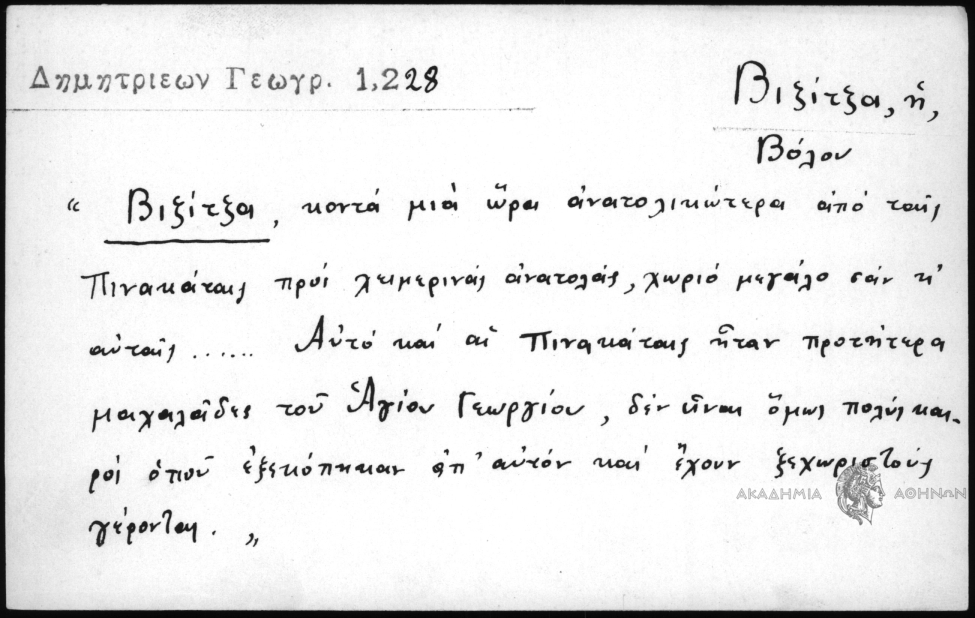 Δημητριεων Γεωγρ. 1,228
Βιζίτζα, ἡ,
Βόλου
“ Βιζίτζα, κοντά μιά ὥρα ἀνατολικώτερα ἀπό ταῖς
Πινακάταις πρός χειμερινάς ἀνατολάς, χωριό μεγάλο σάν κ'
αὐταῖς ...... Αὐτό καί αἱ Πινακάταις ἦταν προτήτερα
μαχαλάδες τοῦ Ἁγίου Γεωργίου, δέν εἶναι ὅμως πολύς και-
ρός ὁποῦ ἐξεκόπηκαν ἀπ' αὐτόν καί ἔχουν ξεχωριστούς
γέρονται. „
ΑΚΑΔΗΜΙΑ ΑΘΗΝΩΝ